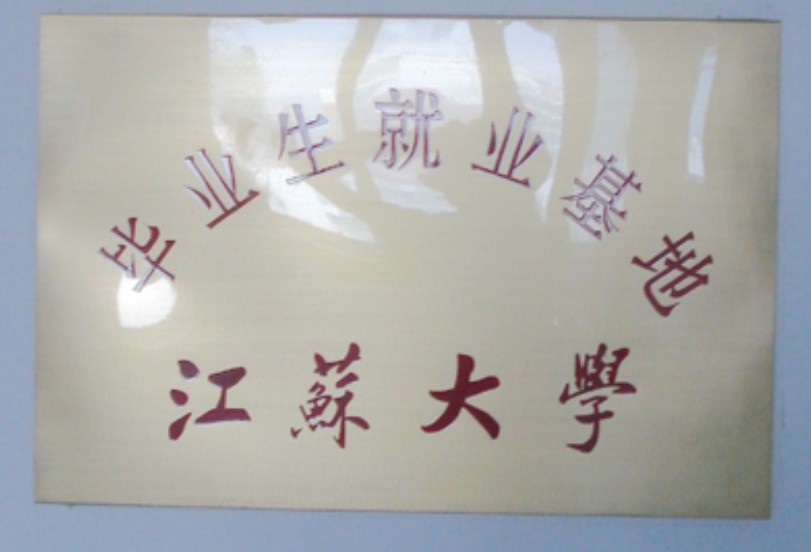 毕业生就业基地
江蘇大學